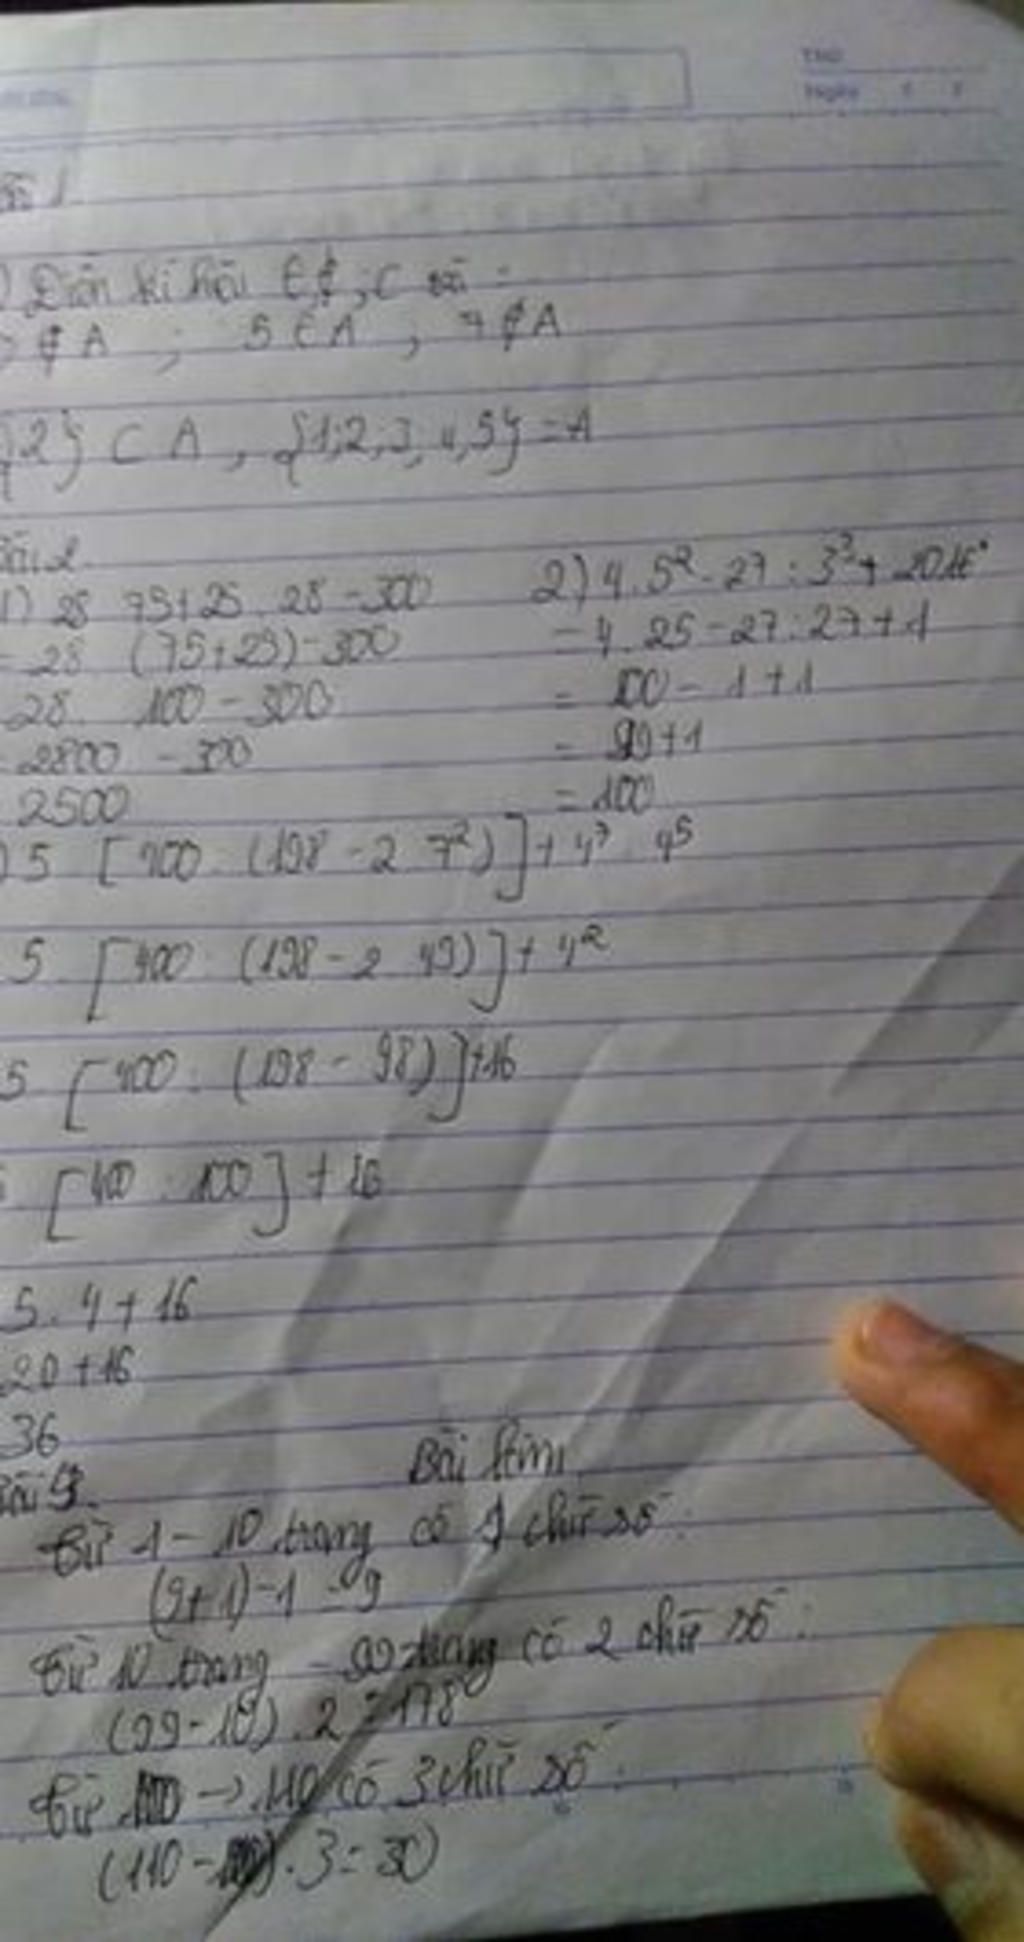 Thứ
Ngày
1
Điền kí hiệu ∈, ∉, ⊂ và :
∉ A ; 5 ∈ A , 7 ∉ A
2} ⊂ A , {1;2;3,4,5} = A
Bài 2.
1) 28 75+25.28-300
= 28 (75+25)-300
28. 100-300
= 2800 -300
2500
2) 4.5²-27:3³+2016°
= 4.25-27:27+1
= 100-1+1
= 99+1
= 100
5 [400:(198-2 7²)]+4⁷:4⁵
5. [400:(198-2 49)]+4²
5 [400:(198-98)]+16
[400:100]+16
5.4+16
20+16
36
Bài làm
Từ 1-10 trang có 1 chữ số:
(9+1)-1=9
từ 10 trang - 99 trang có 2 chữ số:
(99-10).2=178
từ 100 → 110 có 3 chữ số:
(110-100).3=30